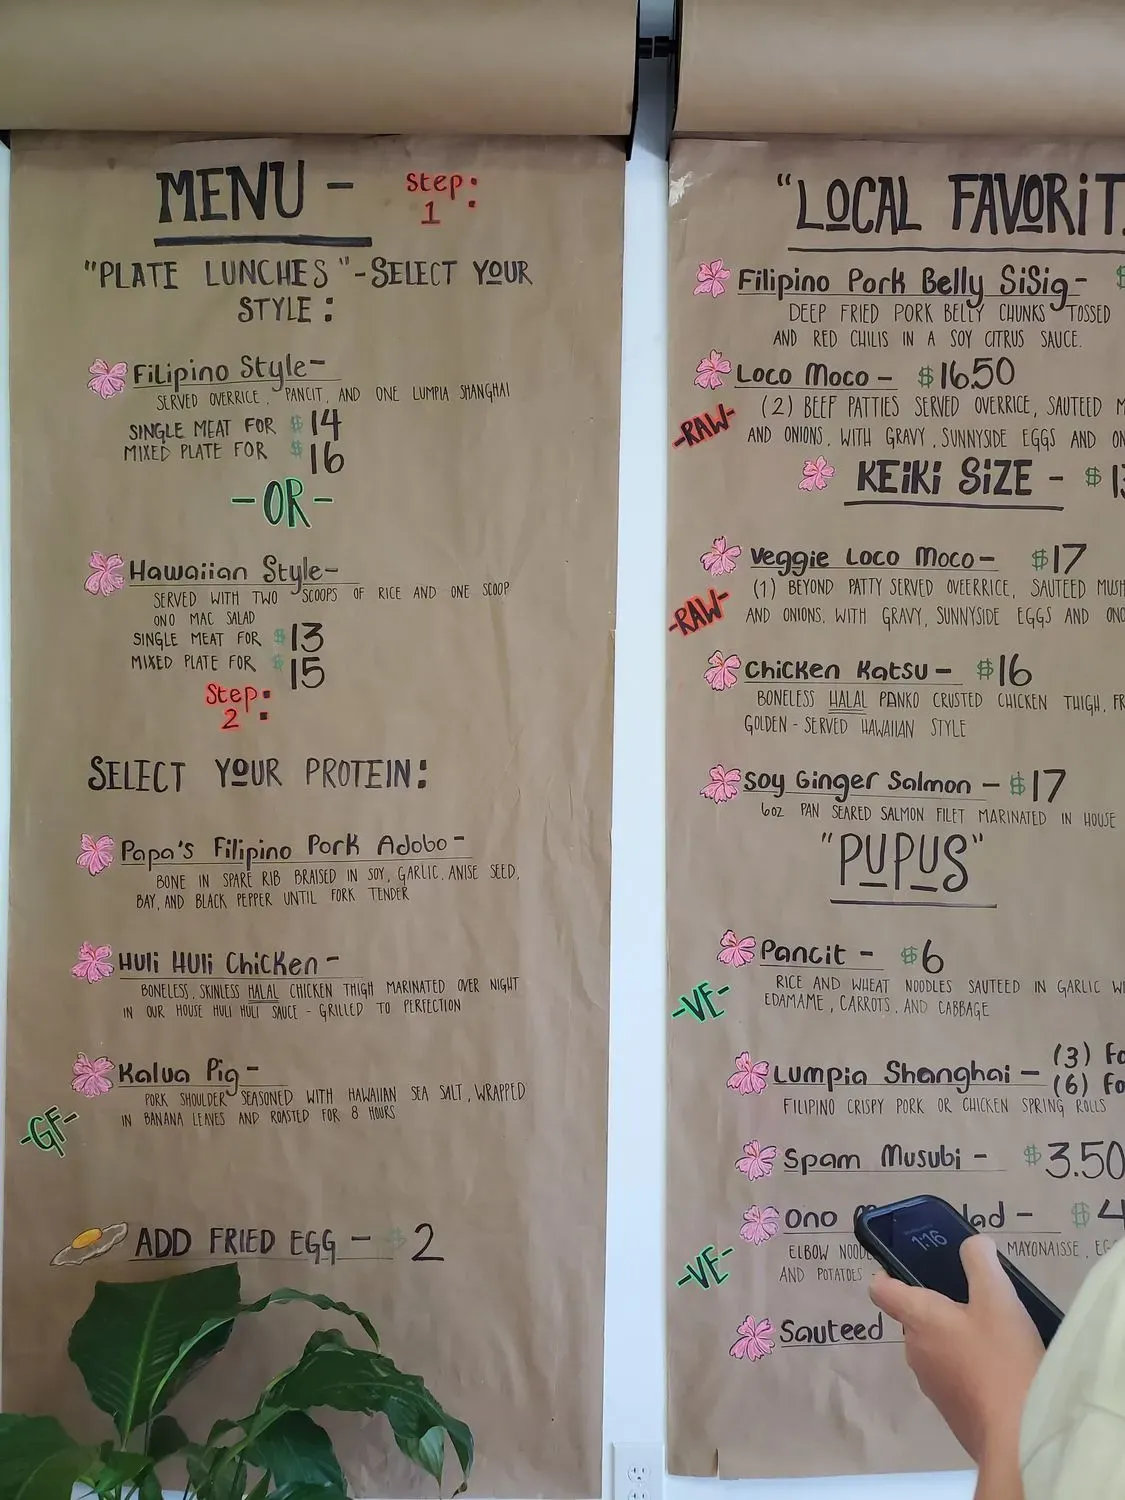 MENU - Step:
1
"PLATE LUNCHES"-SELECT YOUR
STYLE:
Filipino Style-
SERVED OVERRICE, PANCIT, AND ONE LUMPIA SHANGHAI
SINGLE MEAT FOR $14
MIXED PLATE FOR $16
-OR-
Hawaiian Style-
SERVED WITH TWO SCOOPS OF RICE AND ONE SCOOP
ONO MAC SALAD
SINGLE MEAT FOR $13
MIXED PLATE FOR $15
Step:
2
SELECT YOUR PROTEIN:
Papa's Filipino Pork Adobo-
BONE IN SPARE RIB BRAISED IN SOY, GARLIC, ANISE SEED,
BAY, AND BLACK PEPPER UNTIL FORK TENDER
Huli Huli Chicken-
BONELESS, SKINLESS HALAL CHICKEN THIGH MARINATED OVER NIGHT
IN OUR HOUSE HULI HULI SAUCE - GRILLED TO PERFECTION
Kalua Pig-
PORK SHOULDER SEASONED WITH HAWAIIAN SEA SALT, WRAPPED
IN BANANA LEAVES AND ROASTED FOR 8 HOURS
-GF-
ADD FRIED EGG - $2
"LOCAL FAVORIT
Filipino Pork Belly SiSig- $
DEEP FRIED PORK BELLY CHUNKS TOSSED
AND RED CHILIS IN A SOY CITRUS SAUCE.
Loco Moco - $16.50
-RAW- (2) BEEF PATTIES SERVED OVERRICE, SAUTEED M
AND ONIONS, WITH GRAVY, SUNNYSIDE EGGS AND ON
KEIKI SIZE - $1
Veggie Loco Moco- $17
-RAW- (1) BEYOND PATTY SERVED OVEERRICE, SAUTEED MUSH
AND ONIONS, WITH GRAVY, SUNNYSIDE EGGS AND ONO
Chicken Katsu - $16
BONELESS HALAL PANKO CRUSTED CHICKEN THIGH, FR
GOLDEN - SERVED HAWAIIAN STYLE
Soy Ginger Salmon - $17
6oz PAN SEARED SALMON FILET MARINATED IN HOUSE
"PUPUS"
Pancit - $6
-VE- RICE AND WHEAT NOODLES SAUTEED IN GARLIC WI
EDAMAME, CARROTS, AND CABBAGE
Lumpia Shanghai - (3) Fo
(6) Fo
FILIPINO CRISPY PORK OR CHICKEN SPRING ROLLS
Spam Musubi - $3.50
Ono M lad - $4
-VE- ELBOW NOOD MAYONAISSE, EG
AND POTATOES -
Sauteed
1:16